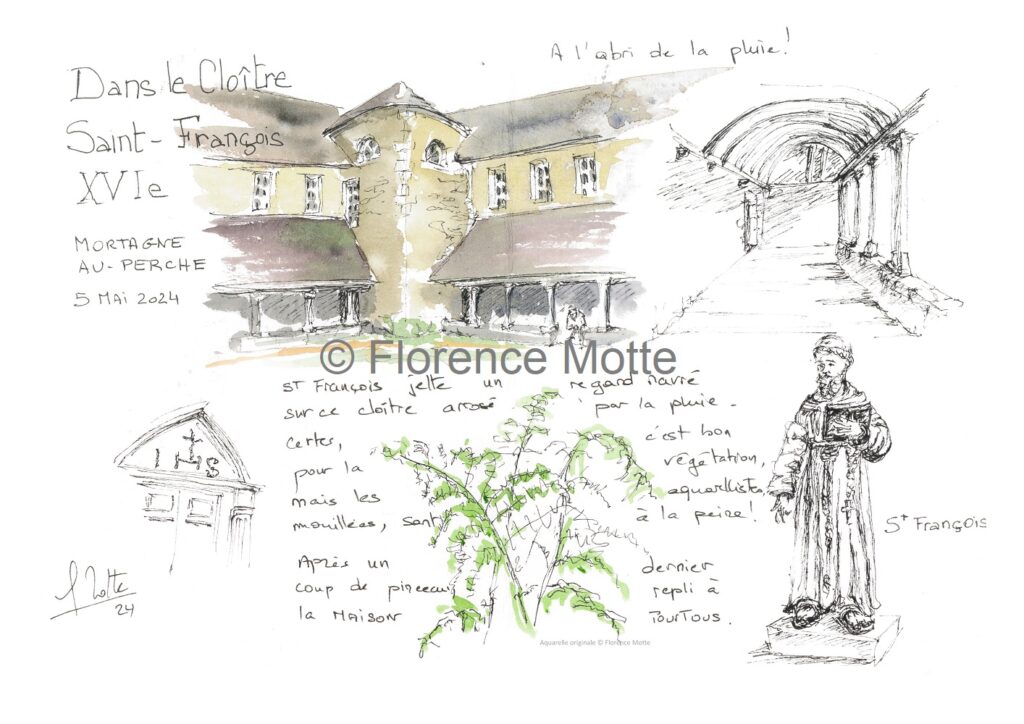 A l'abri de la pluie!
Dans le Cloître
Saint-François
XVIe
MORTAGNE
AU-PERCHE
5 MAI 2024
© Florence Motte
ST François jette un regard navré
sur ce cloître arrosé par la pluie -
Certes, c'est bon
pour la végétation,
mais les aquarellistes,
mouillées, sont à la peine!
Après un dernier
coup de pinceau, repli à
la MAISON POURTOUS.
IHS
St François
24
Aquarelle originale © Florence Motte